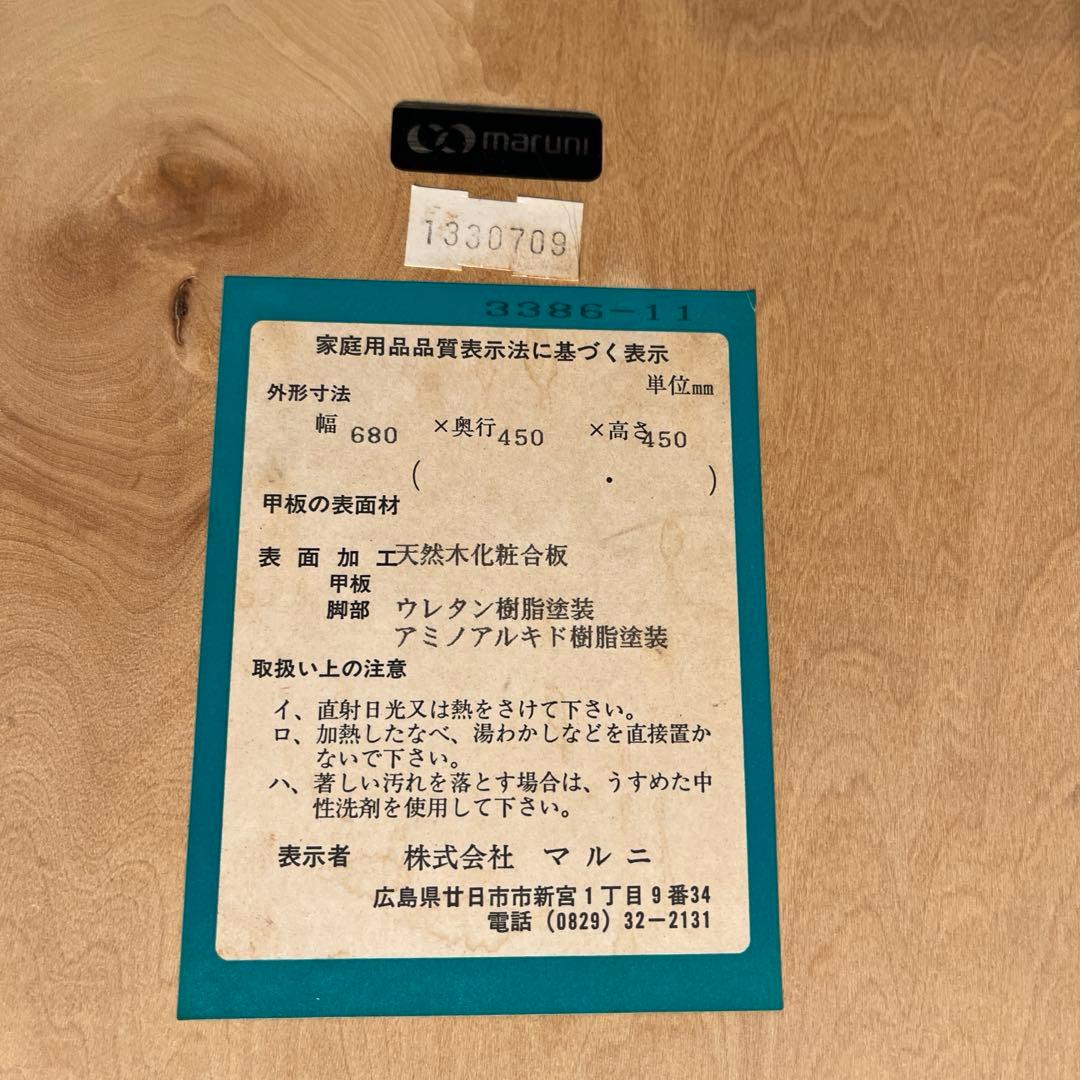 maruni
1330709
3386-11
家庭用品品質表示法に基づく表示
単位mm
外形寸法
幅 680 ×奥行 450 ×高さ 450
( ・ )
甲板の表面材
表面加工 天然木化粧合板
甲板
脚部 ウレタン樹脂塗装
アミノアルキド樹脂塗装
取扱い上の注意
イ、直射日光又は熱をさけて下さい。
ロ、加熱したなべ、湯わかしなどを直接置か
ないで下さい。
ハ、著しい汚れを落とす場合は、うすめた中
性洗剤を使用して下さい。
表示者 株式会社 マルニ
広島県廿日市市新宮1丁目9番34
電話 (0829) 32-2131